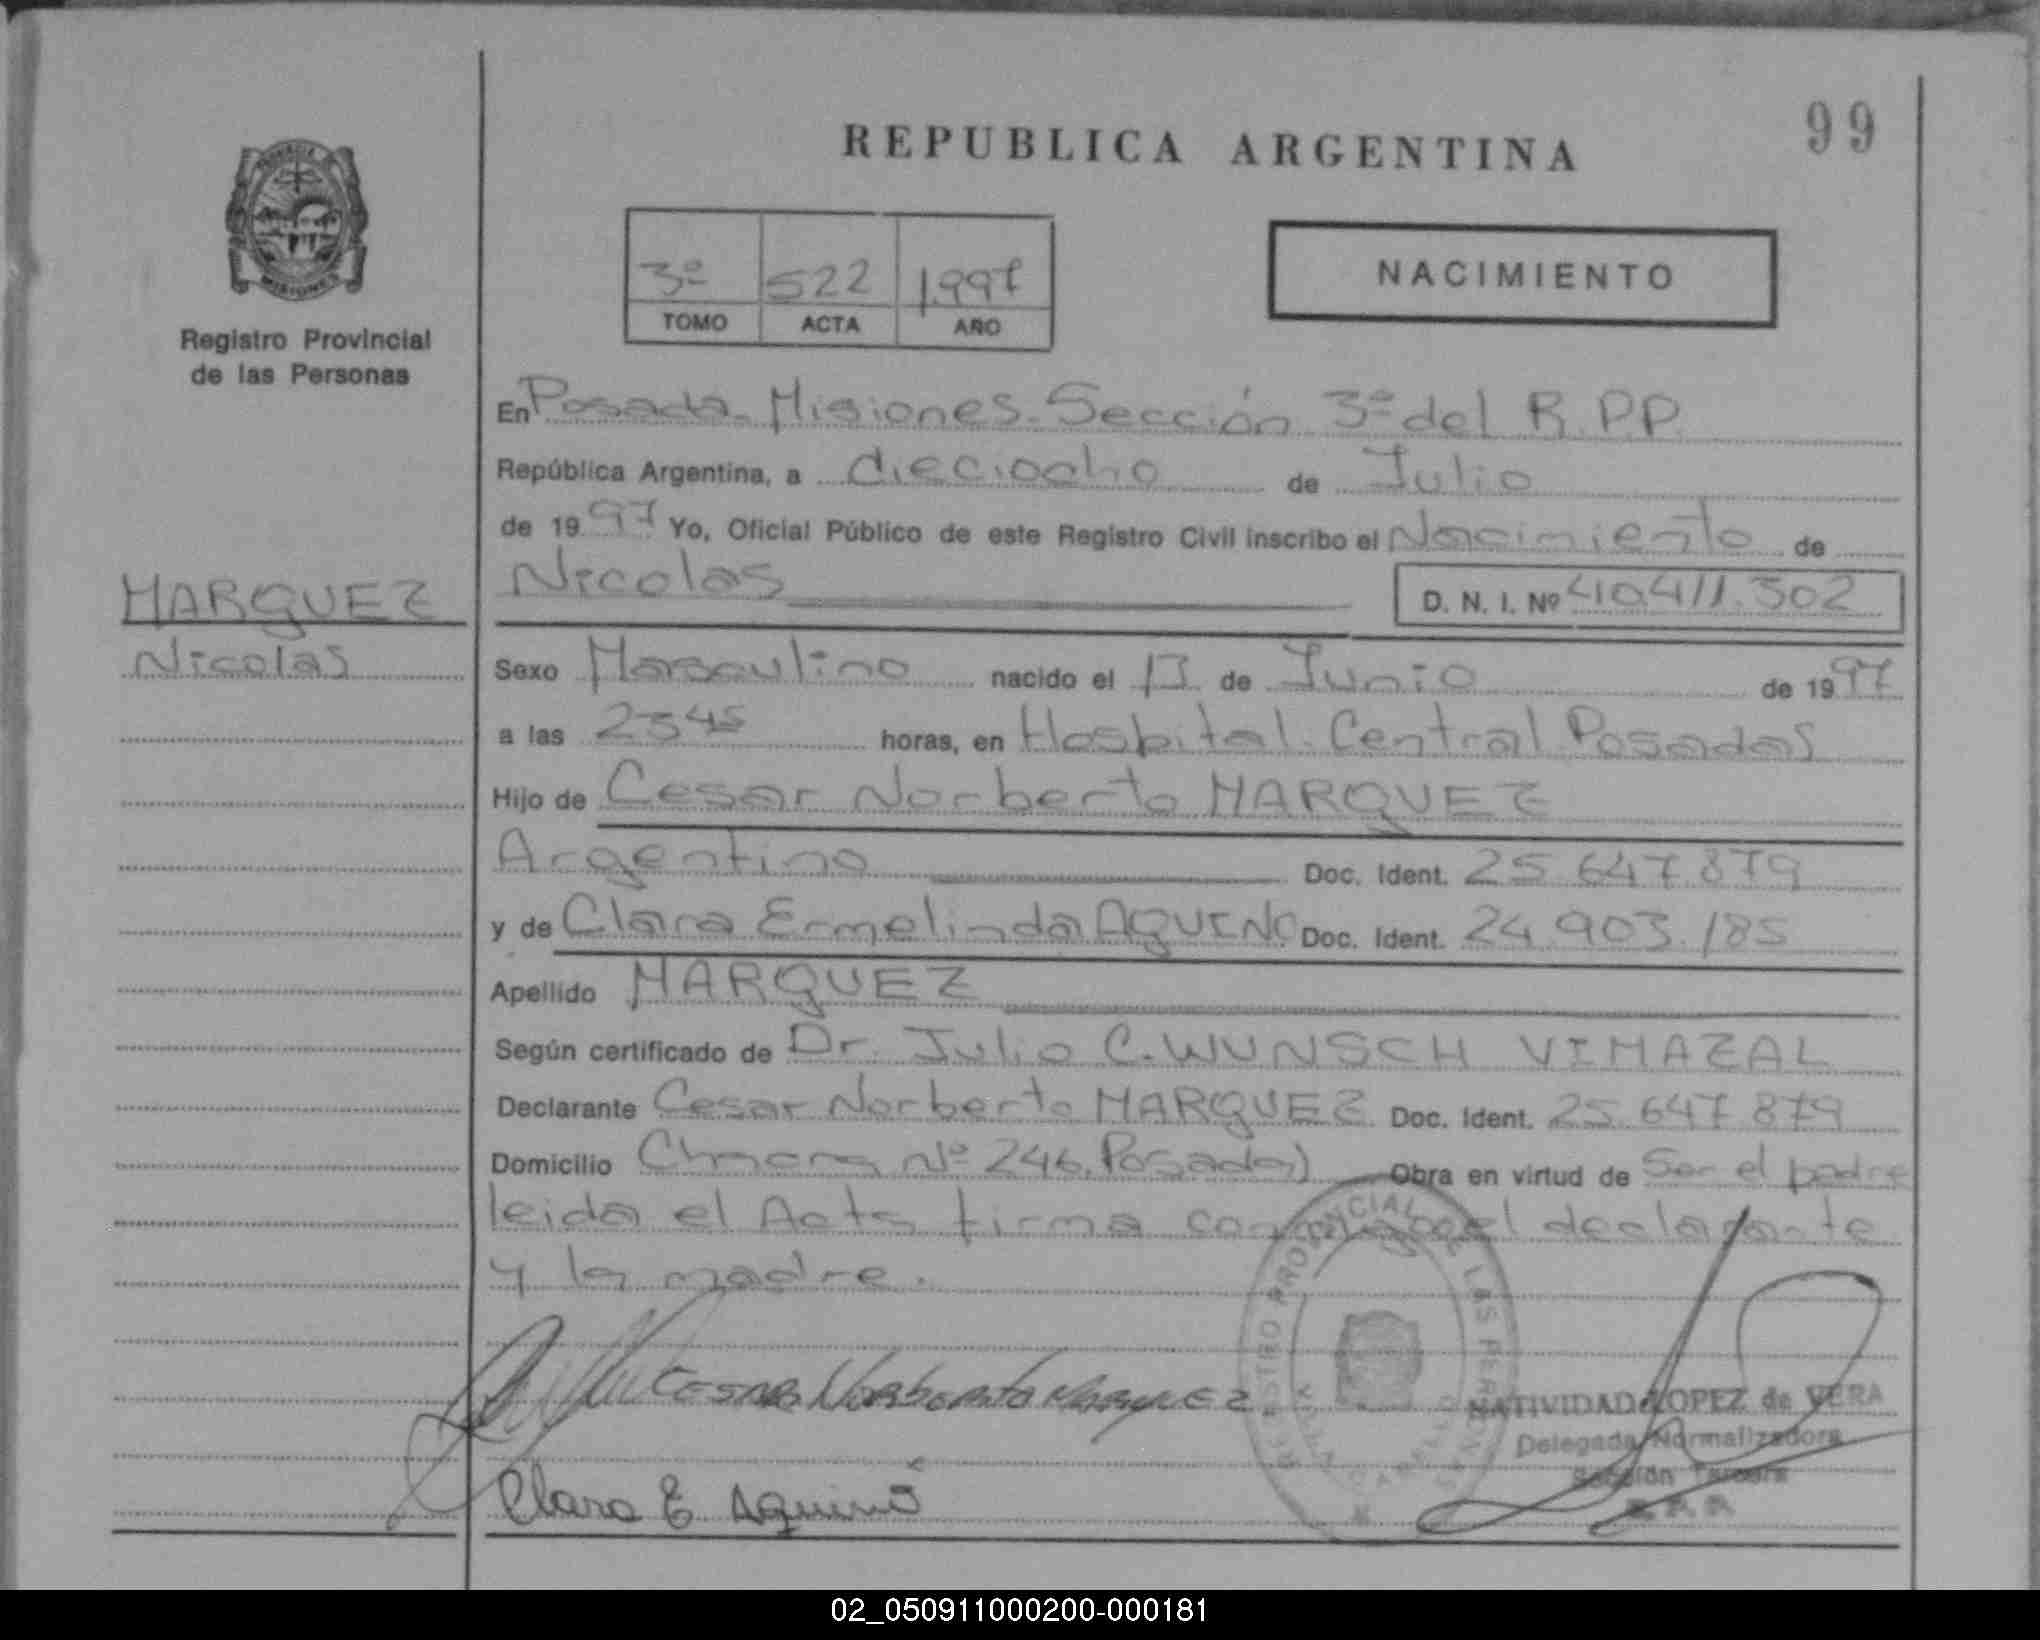 99
REPUBLICA ARGENTINA
3º 522 1997
TOMO ACTA AÑO
NACIMIENTO
Registro Provincial
de las Personas
En Posadas Misiones. Sección 3ª del R.P.P.
República Argentina, a dieciocho de Julio
de 1997 Yo, Oficial Público de este Registro Civil inscribo el Nacimiento de
Nicolas D. N. I. Nº 40.411.302
MARQUEZ
Nicolas
Sexo Masculino nacido el 17 de Junio de 1997
a las 2345 horas, en Hospital Central Posadas
Hijo de Cesar Norberto MARQUEZ
Argentino Doc. Ident. 25.647.879
y de Clara Ermelinda AQUINO Doc. Ident. 24.903.185
Apellido MARQUEZ
Según certificado de Dr. Julio C. WUNSCH VIMAZAL
Declarante Cesar Norberto MARQUEZ Doc. Ident. 25.647.879
Domicilio Chacra Nº 246. Posadas Obra en virtud de Ser el padre
leida el Acta firma conmigo el declarante
y la madre.
CESAR NORBERTO MARQUEZ
Clara E Aquino
REGISTRO PROVINCIAL DE LAS PERSONAS
NATIVIDAD LOPEZ de VERA
Delegada Normalizadora
Sección Tercera
02_050911000200-000181